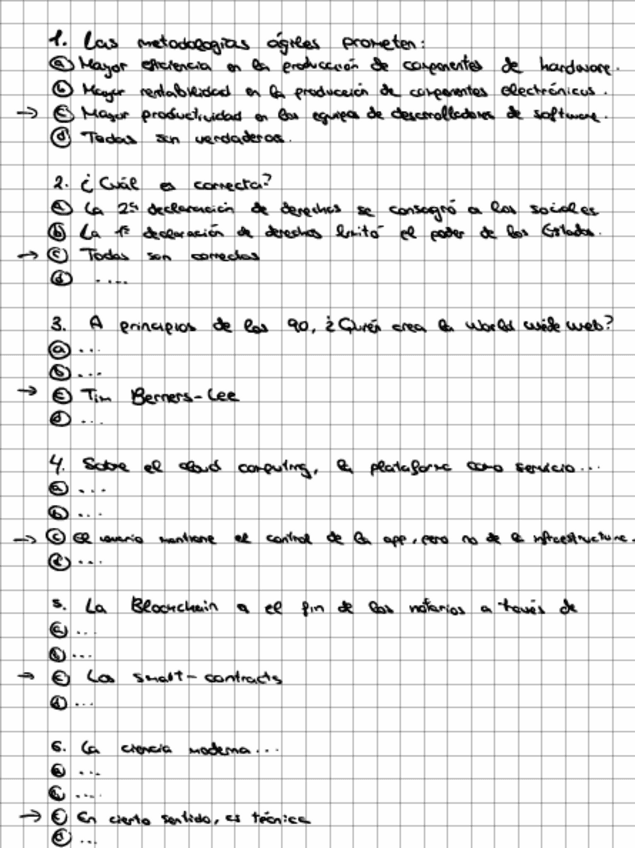 1. Las metodologías ágiles prometen:
ⓐ Mayor eficiencia en la producción de componentes de hardware.
ⓑ Mayor rentabilidad en la producción de componentes electrónicos.
→ ⓒ Mayor productividad en los equipos de desarrolladores de software.
ⓓ Todas son verdaderas.
2. ¿Cuál es correcta?
ⓐ La 2ª declaración de derechos se consagró a los sociales
ⓑ La 1ª declaración de derechos limitó el poder de los Estados.
→ ⓒ Todas son correctas
ⓓ ....
3. A principios de los 90, ¿Quién crea la world wide web?
ⓐ ...
ⓑ ...
→ ⓒ Tim Berners-Lee
ⓓ ...
4. Sobre el cloud computing, la plataforma como servicio...
ⓐ ...
ⓑ ...
→ ⓒ El usuario mantiene el control de la app, pero no de la infraestructura.
ⓓ ...
5. La Blockchain es el fin de los notarios a través de
ⓐ ...
ⓑ ...
→ ⓒ Los smart-contracts
ⓓ ...
6. La ciencia moderna...
ⓐ ...
ⓑ ....
→ ⓒ En cierto sentido, es técnica
ⓓ ...